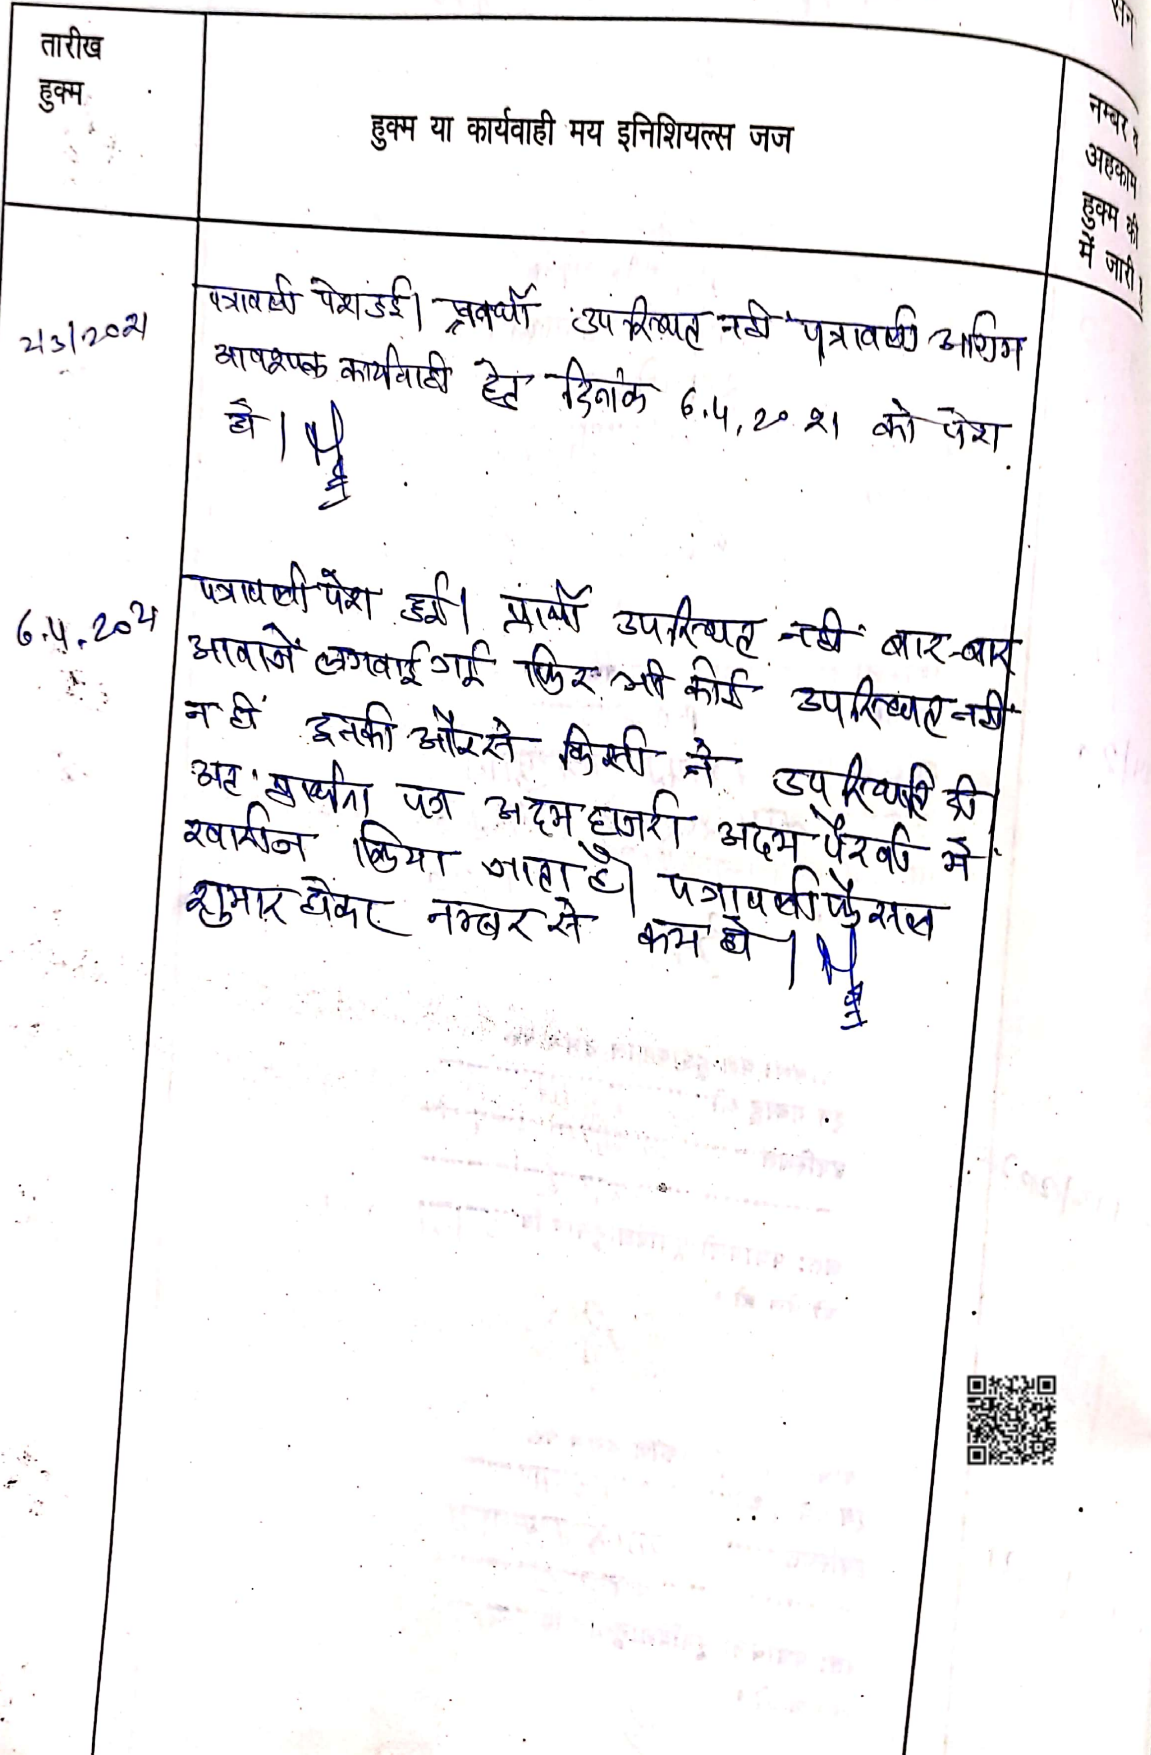 तारीख
हुक्म
हुक्म या कार्यवाही मय इनिशियल्स जज
नम्बर व
अहकाम
हुक्म की
में जारी
2/3/2021
पत्रावली पेश हुई। उपस्थित नही पत्रावली अग्रिम
आवश्यक कार्यवाही हेतु दिनांक 6.4.2021 को पेश
हो।
6.4.2021
पत्रावली पेश हुई। प्रार्थी उपस्थित नही बार-बार
आवाजें लगवाई गई फिर भी कोई उपस्थित नही
न ही इनकी और से किसी ने उपस्थिति दी
अतः प्रार्थना पत्र अदम हाजरी अदम पैरवी में
खारीज किया जाता है। पत्रावली फैसल
शुमार होकर नम्बर से कम हो।